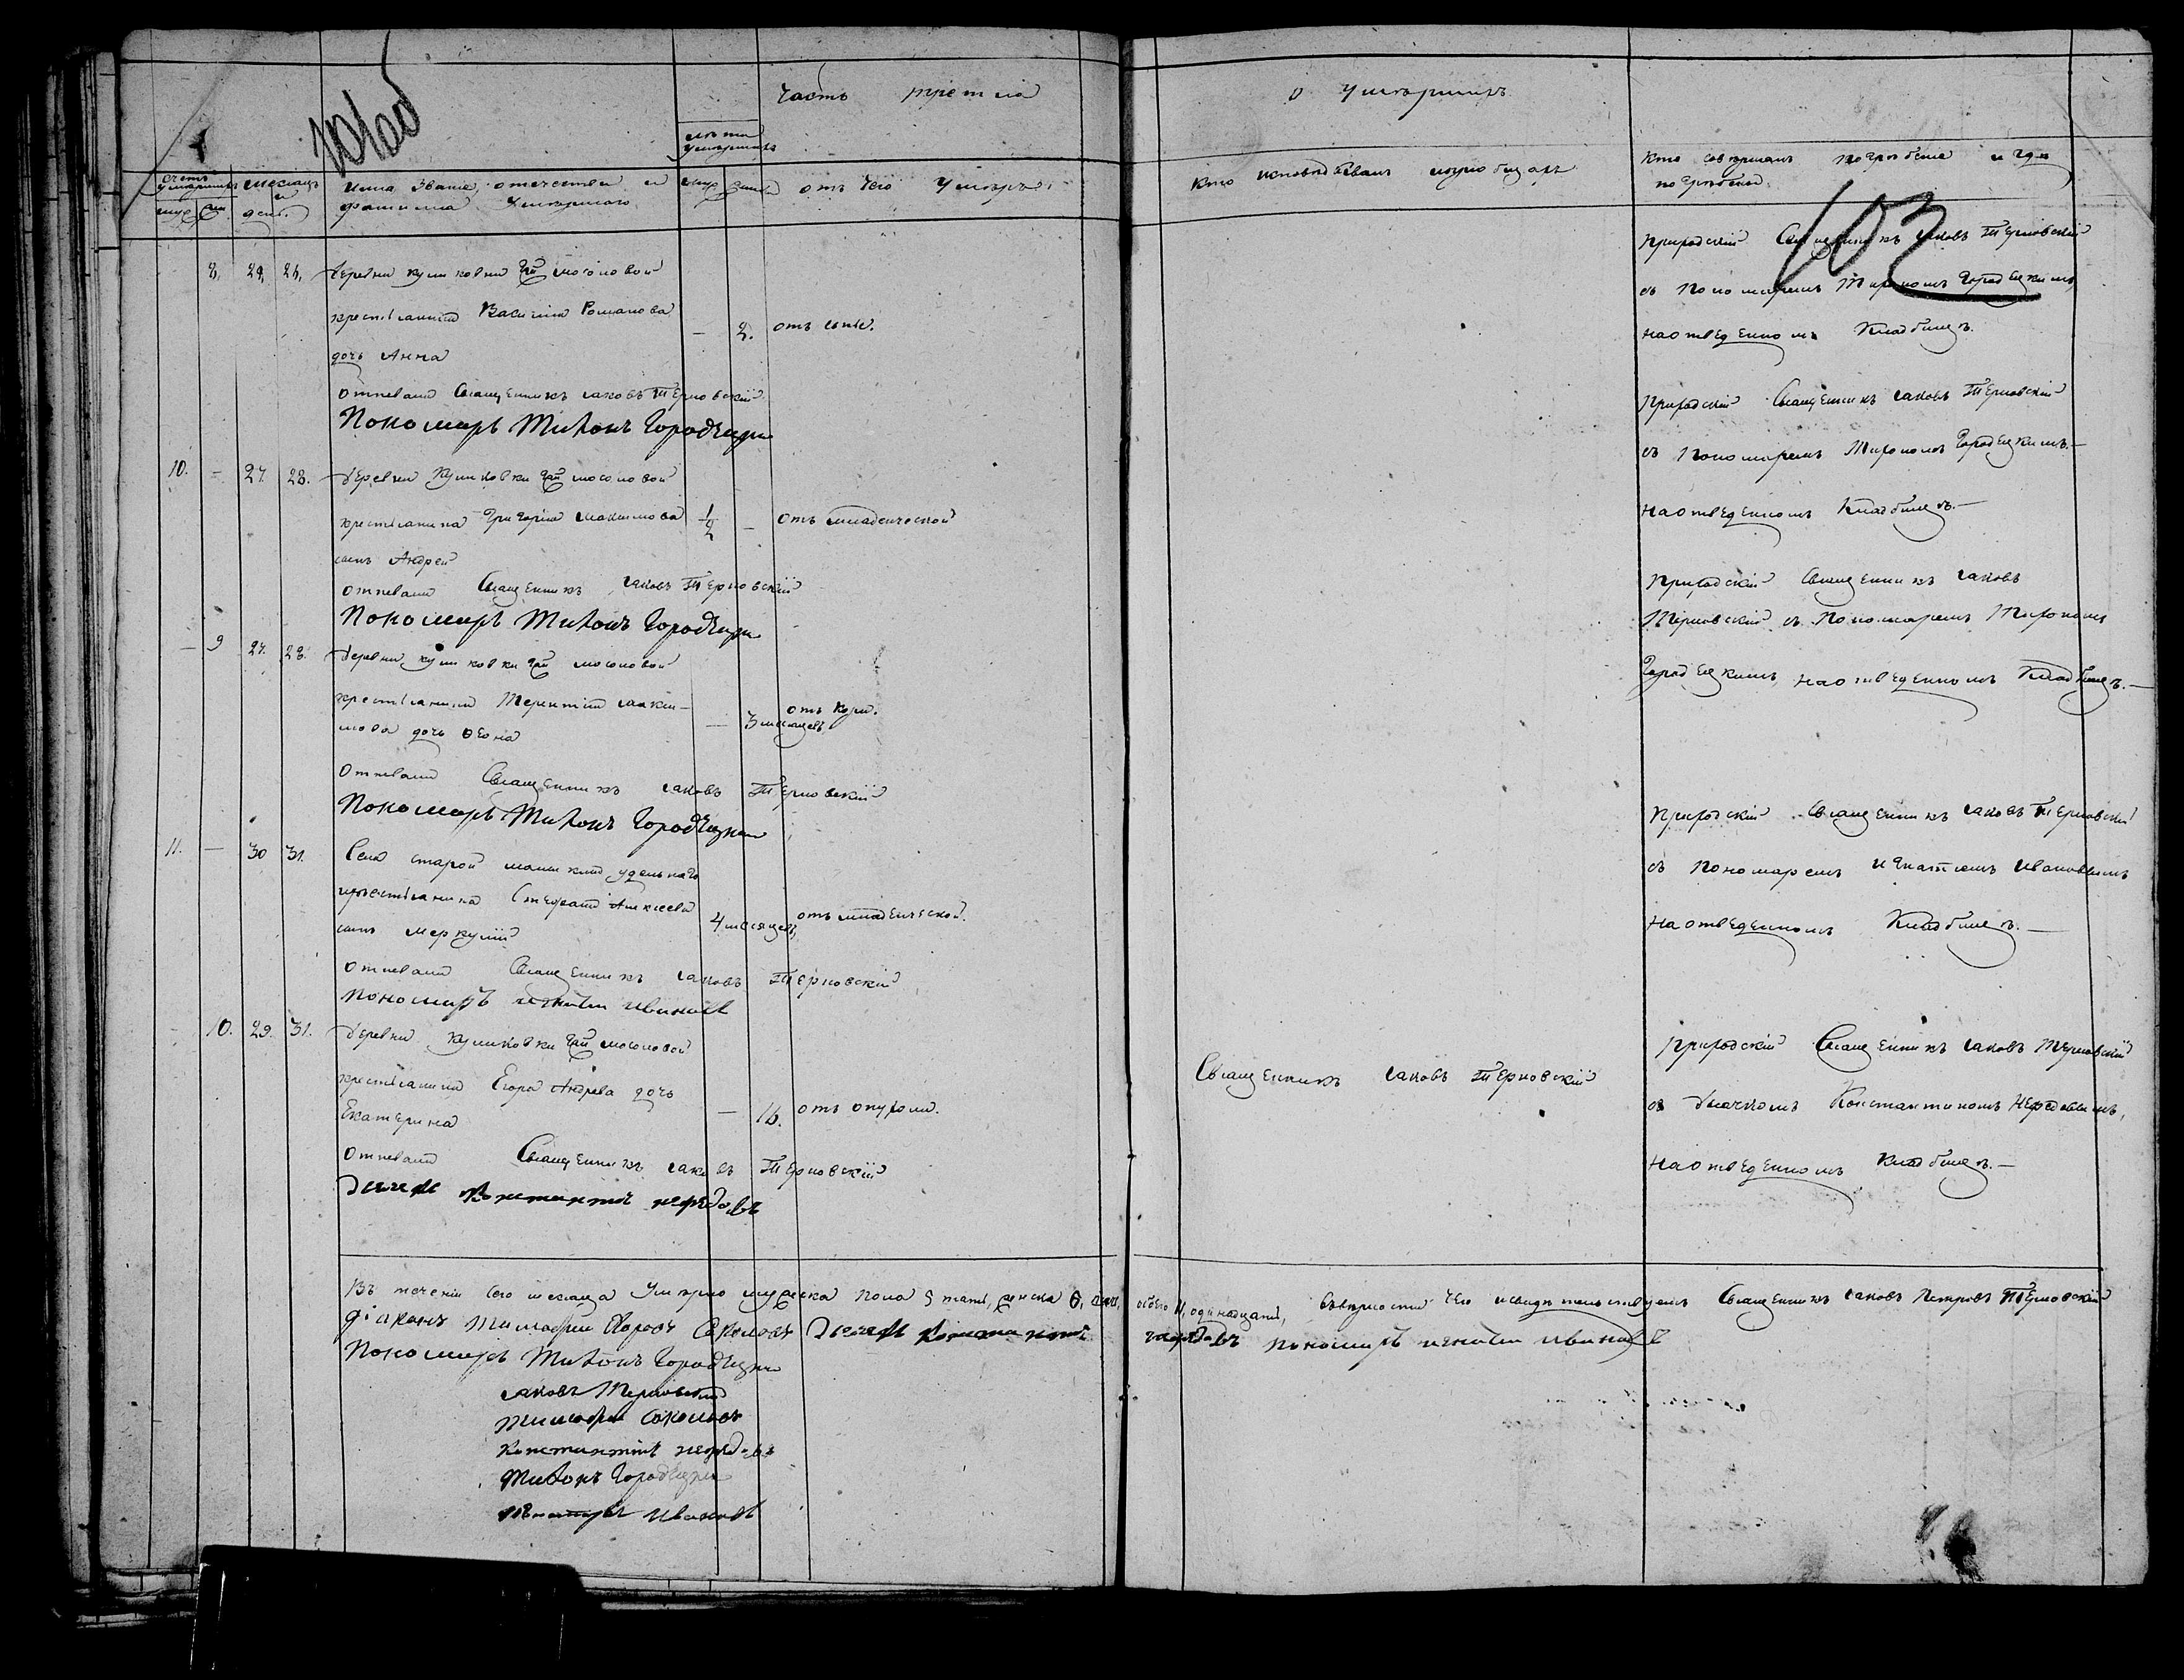 Часть третия
о умершихъ
лета умершихъ
счетъ умершихъ
месяцъ и день.
Имя звание отечество и фамилия умершаго
муж женс
отъ чего умеръ.
Кто исповедовалъ и приобщалъ
Кто совершалъ погребение и где погребены.
103
8. 24. 24. Деревни Куликовки Гжи Мосоловой
крестьянина Василия Романова — 2. отъ сыпи.
дочь Анна
отпевали Священникъ Iаковъ Терновский
Пономарь Тихонъ Городецкий
Приходский Священникъ Iаковъ Терновский
съ Пономаремъ Тихономъ Городецкимъ
на отведенномъ Кладбище.
10. — 27. 28. Деревни Куликовки Гжи Мосоловой
крестьянина Григория Максимова 1/2 — отъ младенческой
сынъ Андрей
отпевали Священникъ Iаковъ Терновский
Пономарь Тихонъ Городецкий
Приходский Священникъ Iаковъ Терновский
съ Пономаремъ Тихономъ Городецкимъ.—
на отведенномъ Кладбище.—
— 9 27. 28. Деревни Куликовки Гжи Мосоловой
крестьянина Терентия Макси-
мова дочь — 3 месяцевъ отъ кори.
отпевали Священникъ Iаковъ Терновский
Пономарь Тихонъ Городецкий
Приходский Священникъ Iаковъ
Терновский съ Пономаремъ Тихономъ
Городецкимъ на отведенномъ Кладбище.—
11. — 30 31. Села Старой удельнаго
крестьянина Алексеева
сынъ Меркулий 4 месяцевъ, отъ младенческой.
отпевали Священникъ Iаковъ Терновский
пономарь игнатий ивановъ
Приходский Священникъ Iаковъ Терновский
съ Пономаремъ Игнатиемъ Ивановымъ
на отведенномъ Кладбище.—
— 10. 29. 31. Деревни Куликовки Гжи Мосоловой
крестьянина Егора Андрева дочь
Екатерина — 16. отъ опухоли.
отпевали Священникъ Iаковъ Терновский
дьячекъ Константинъ нефедовъ
Священникъ Iаковъ Терновский
Приходский Священникъ Iаковъ Терновский
съ Дьячкомъ Константиномъ Нефедовымъ,
на отведенномъ Кладбище.—
Въ течении сего месяца Умерло мужеска пола 5 пять, женска 6, обоего 11, одинадцать, въ верности чего и свидетельствуемъ Священникъ Iаковъ Петровъ Терновский
дiаконъ Тимофей Соколовъ Дьячекъ Константинъ нефедовъ пономарь игнатий ивановъ
Пономарь Тихонъ Городецкий
Iаковъ Терновский
Тимофей Соколовъ
Константинъ нефедовъ
Тихонъ Городецкий
Ивановъ